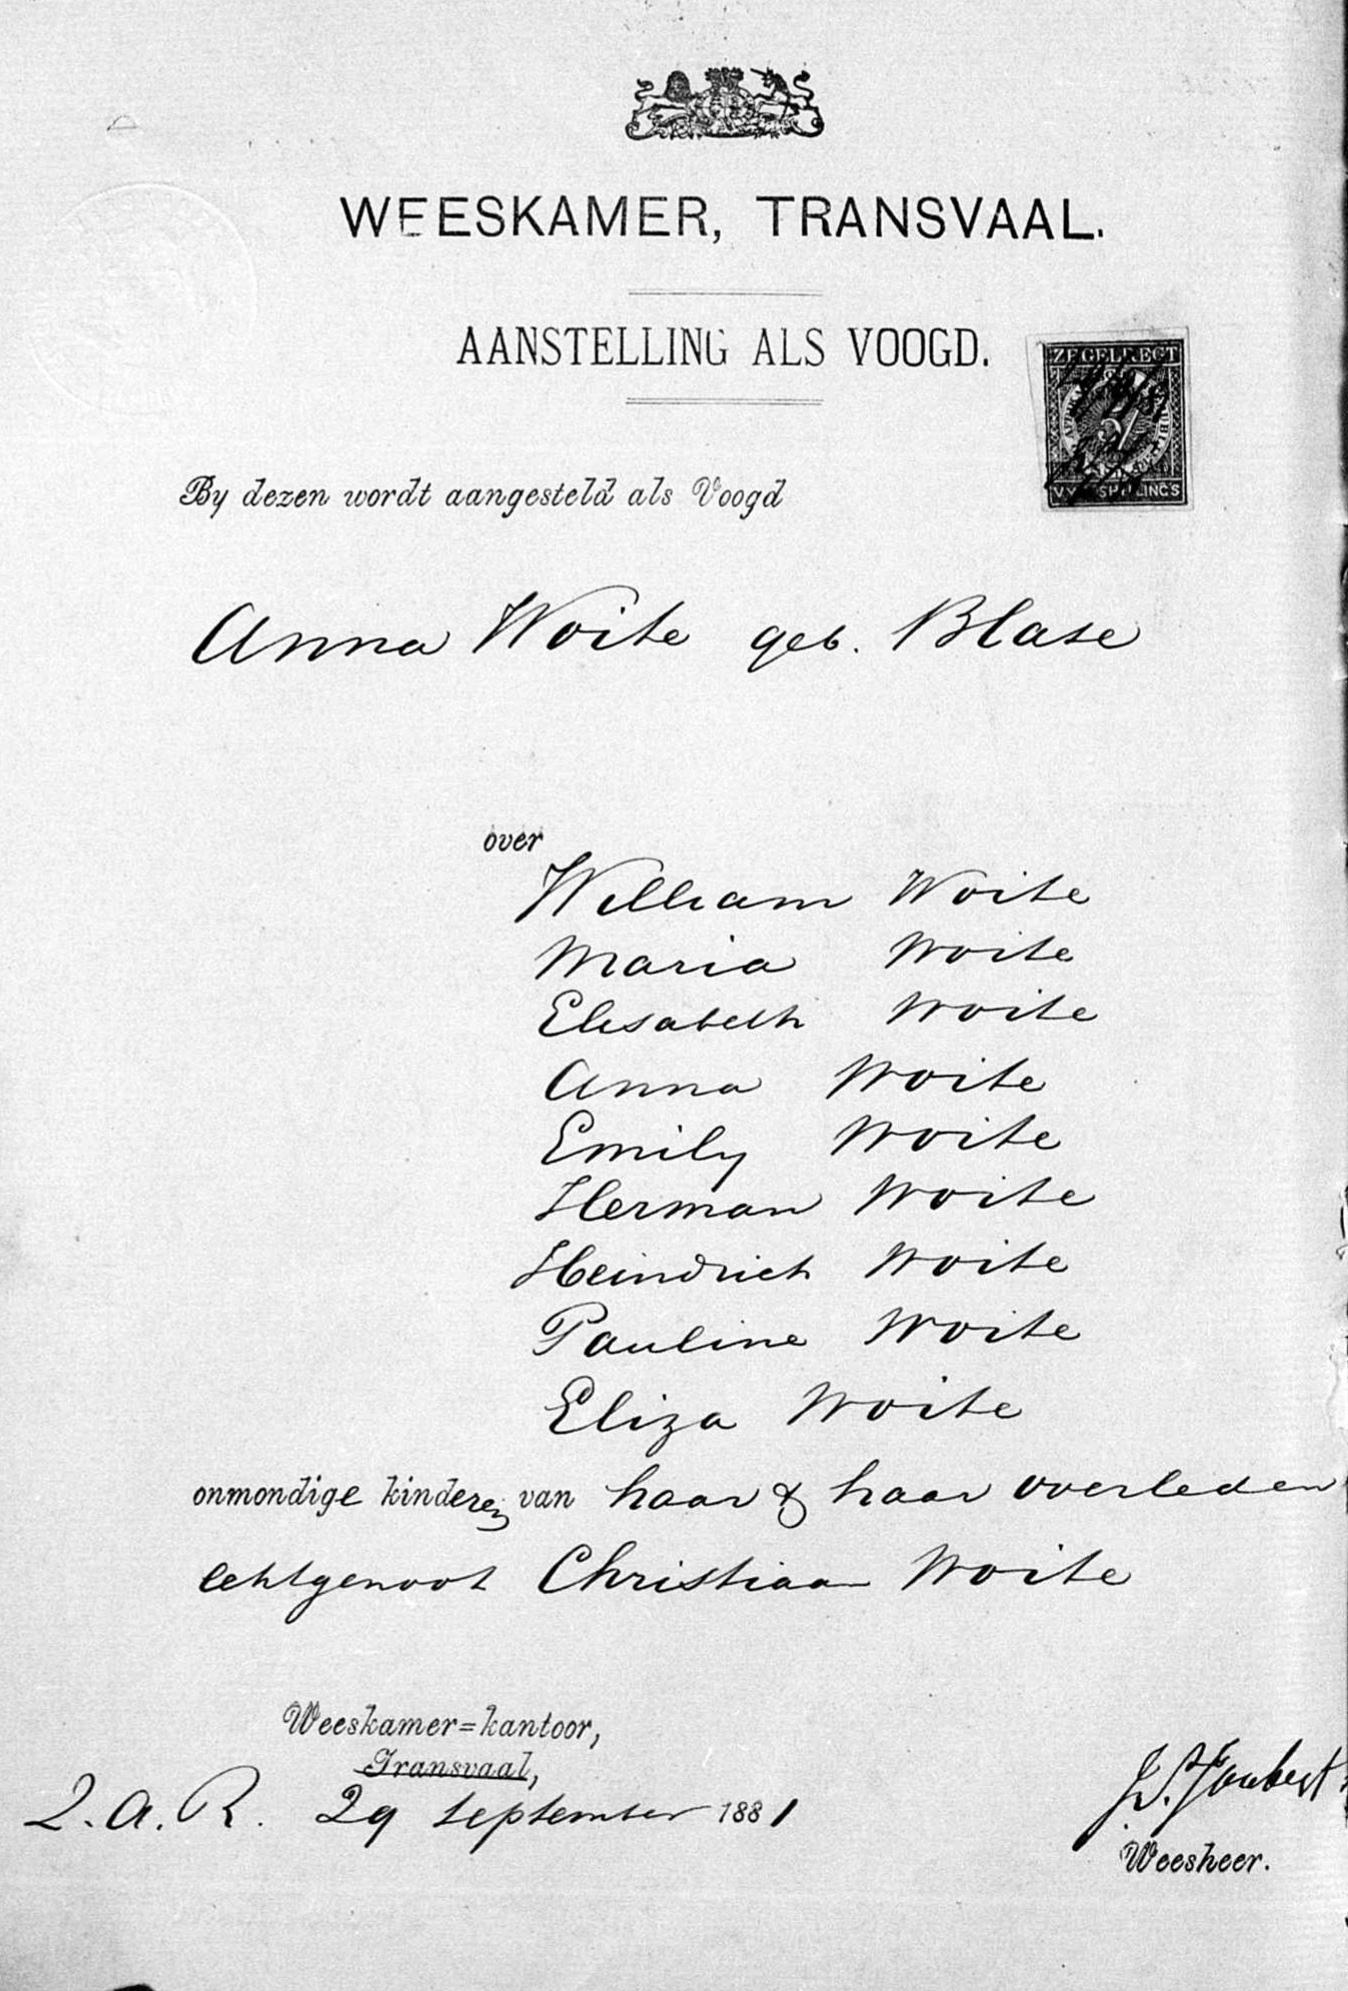 WEESKAMER, TRANSVAAL.
AANSTELLING ALS VOOGD.
ZEGELREGT
5/
VYF SHILLINGS
By dezen wordt aangesteld als Voogd
Anna Woite geb. Blase
over
William Woite
Maria Woite
Elisabeth Woite
Anna Woite
Emily Woite
Herman Woite
Heindrich Woite
Pauline Woite
Eliza Woite
onmondige kinderen van haar & haar overleden
echtgenoot Christiaan Woite
Weeskamer=kantoor,
Transvaal,
Z.A.R. 29 September 1881
Joubert
Weesheer.